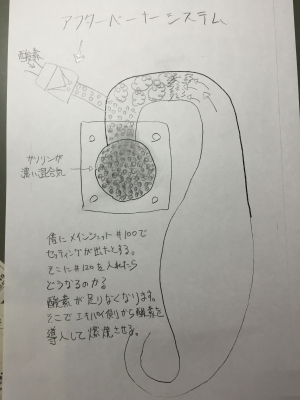 アフターバーナーシステム
酸素
ガソリンが
濃い混合気
仮にメインジェット#100で
セッティングが出たとする。
そこに#120を入れたら
どうなるのか?
酸素が足りなくなります。
そこでエキパイ側から酸素を
導入して燃焼させる。